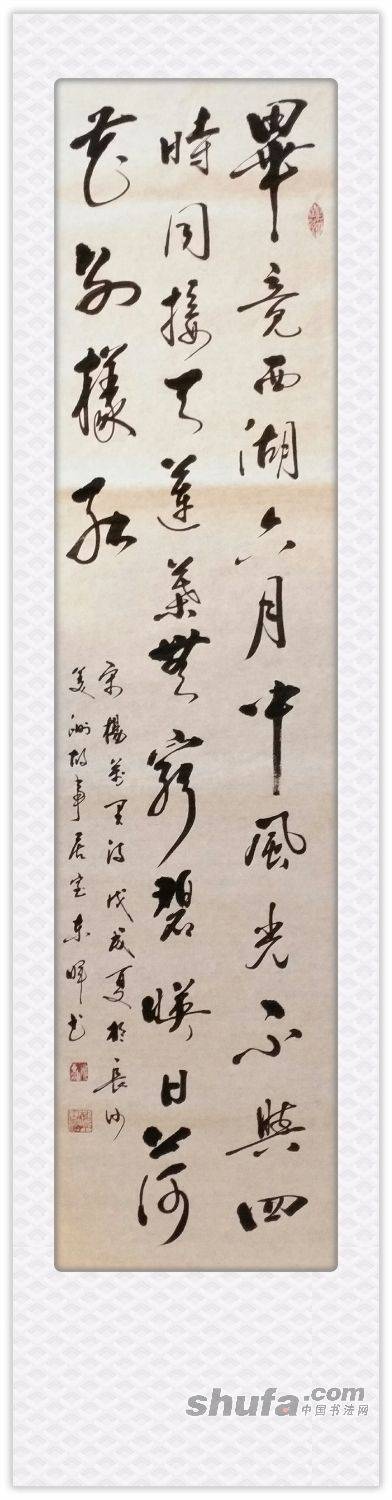 畢竟西湖六月中風光不與四
時同接天蓮葉無窮碧暎日荷
花別樣紅
宋楊萬里詩戊戌夏於長沙
美洲故事居室東暉書
shufa.com
中国书法网